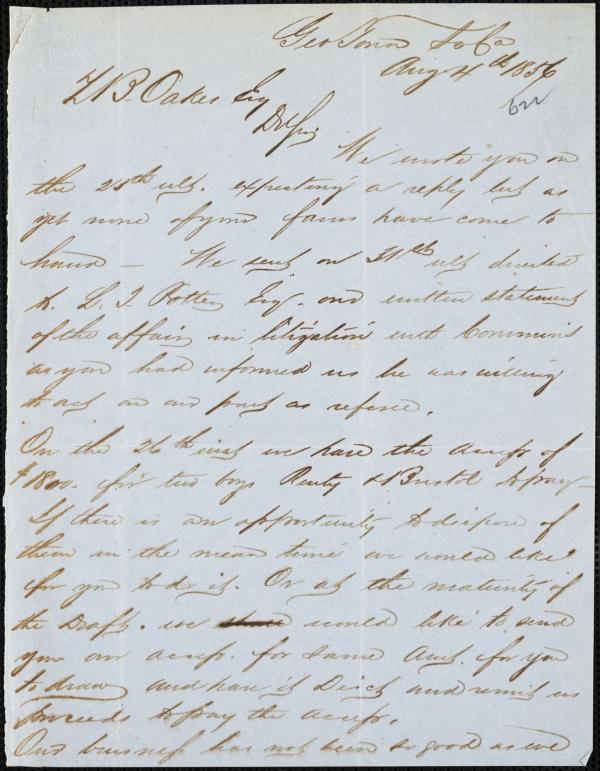 Geo Town So Ca
Aug 4th 1856
Z B. Oakes Esq
622
Dr Sir
We wrote you on
the 28th ult. expecting a reply but as
yet none of your favors have come to
hand — We sent on 31st ult directed
to L. T. Potter Esq. our written statement
of the affair in litigation with Commins
as you had informed us he was willing
to act on our part as referee.
On the 26th inst we have the accep of
$1800. for two boys Renty & Bristol to pay —
If there is an opportunity to dispose of
them in the mean time we would like
for you to do it. Or at the maturity of
the Draft. we would like to send
you our accep. for same Amt. for you
to draw and have it Disct and remit us
proceeds to pay the accep.
Our business has not been so good as we